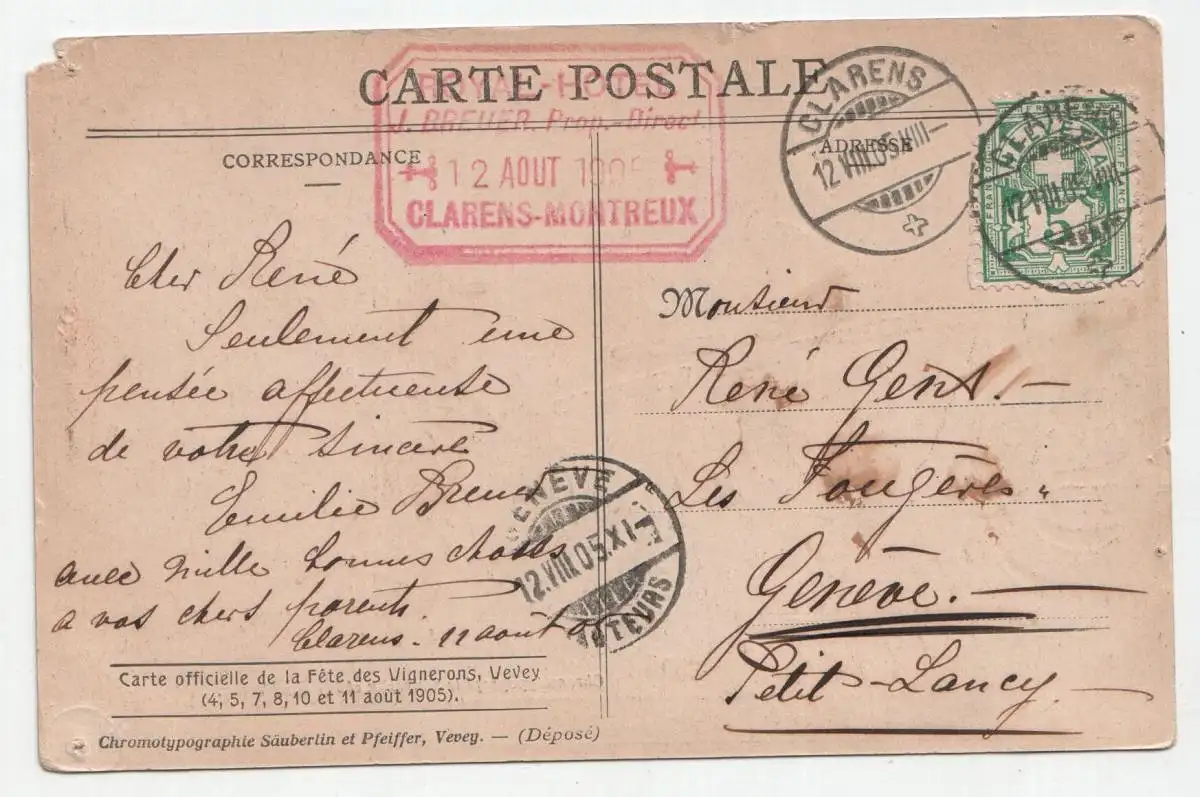 CARTE POSTALE
ROYAL-HOTEL
J. BREUER. Prop.-Direct.
12 AOUT
CLARENS-MONTREUX
CLARENS
12.VIII.05.VIII—
CLARENS
12.VIII.05.VIII—
FRANCO
5
CORRESPONDANCE
ADRESSE
Cher René
Seulement une
pensée affectueuse
de votre sincère
Emilie Breuer
avec mille bonnes choses
a vos chers parents.
Clarens. 11 aout 05
Monsieur
René Gent.—
Les Fougères
Genève.—
Petit-Lancy—
GENÈVE
12.VIII.05.XI-
FACTEURS
Carte officielle de la Fête des Vignerons, Vevey
(4, 5, 7, 8, 10 et 11 août 1905).
Chromotypographie Säuberlin et Pfeiffer, Vevey. — (Déposé)